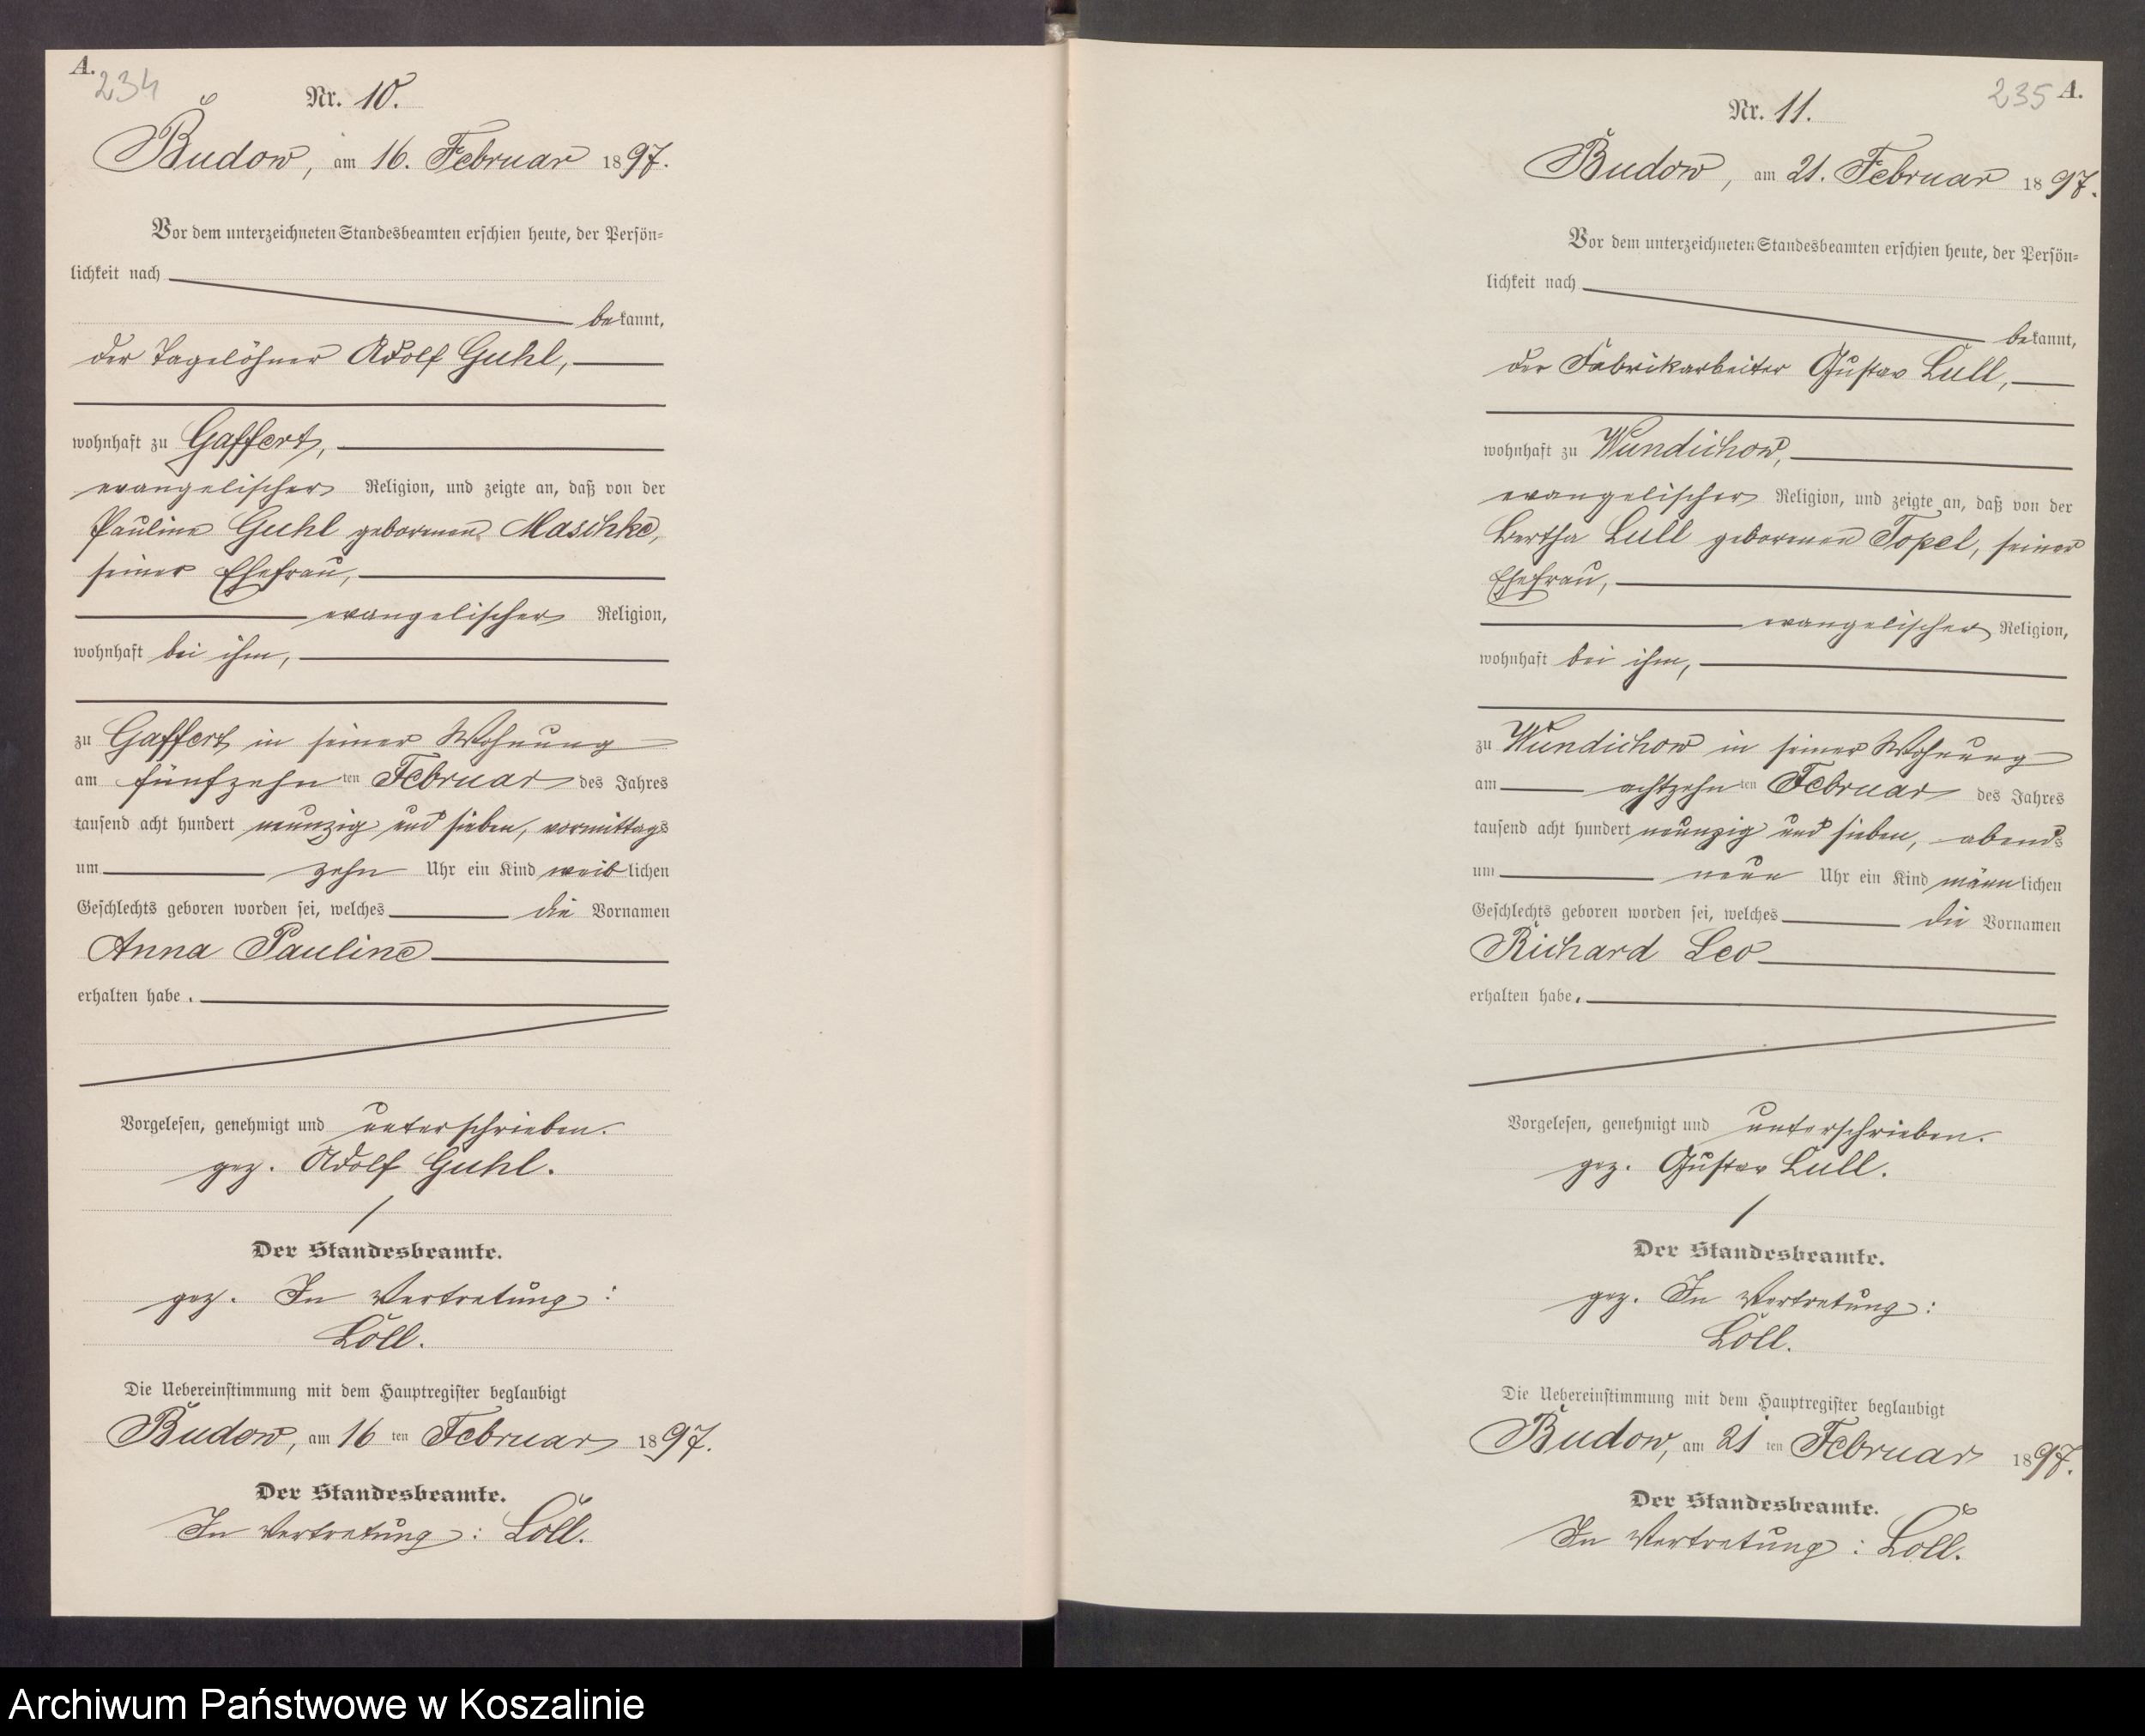 A.
234
Nr. 10.
Budow, am 16. Februar 1897.
Vor dem unterzeichneten Standesbeamten erschien heute, der Persön=
lichkeit nach
bekannt,
der Tagelöhner Adolf Guhl,
wohnhaft zu Gaffert,
evangelischer Religion, und zeigte an, daß von der
Pauline Guhl geborenen Maschke,
seiner Ehefrau,
evangelischer Religion,
wohnhaft bei ihm,
zu Gaffert in seiner Wohnung
am fünfzehnten Februar des Jahres
tausend acht hundert neunzig und sieben, vormittags
um zehn Uhr ein Kind weiblichen
Geschlechts geboren worden sei, welches die Vornamen
Anna Pauline
erhalten habe.
Vorgelesen, genehmigt und unterschrieben.
gez. Adolf Guhl.
Der Standesbeamte.
gez. In Vertretung:
Löll.
Die Uebereinstimmung mit dem Hauptregister beglaubigt
Budow, am 16ten Februar 1897.
Der Standesbeamte.
In Vertretung: Löll.
235 A.
Nr. 11.
Budow, am 21. Februar 1897.
Vor dem unterzeichneten Standesbeamten erschien heute, der Persön=
lichkeit nach
bekannt,
der Fabrikarbeiter Gustav Lull,
wohnhaft zu Wundichow,
evangelischer Religion, und zeigte an, daß von der
Bertha Lull geborenen Topel, seiner
Ehefrau,
evangelischer Religion,
wohnhaft bei ihm,
zu Wundichow in seiner Wohnung
am achtzehnten Februar des Jahres
tausend acht hundert neunzig und sieben, abends
um neun Uhr ein Kind männlichen
Geschlechts geboren worden sei, welches die Vornamen
Richard Leo
erhalten habe.
Vorgelesen, genehmigt und unterschrieben.
gez. Gustav Lull.
Der Standesbeamte.
gez. In Vertretung:
Löll.
Die Uebereinstimmung mit dem Hauptregister beglaubigt
Budow, am 21ten Februar 1897.
Der Standesbeamte.
In Vertretung: Löll.
Archiwum Państwowe w Koszalinie